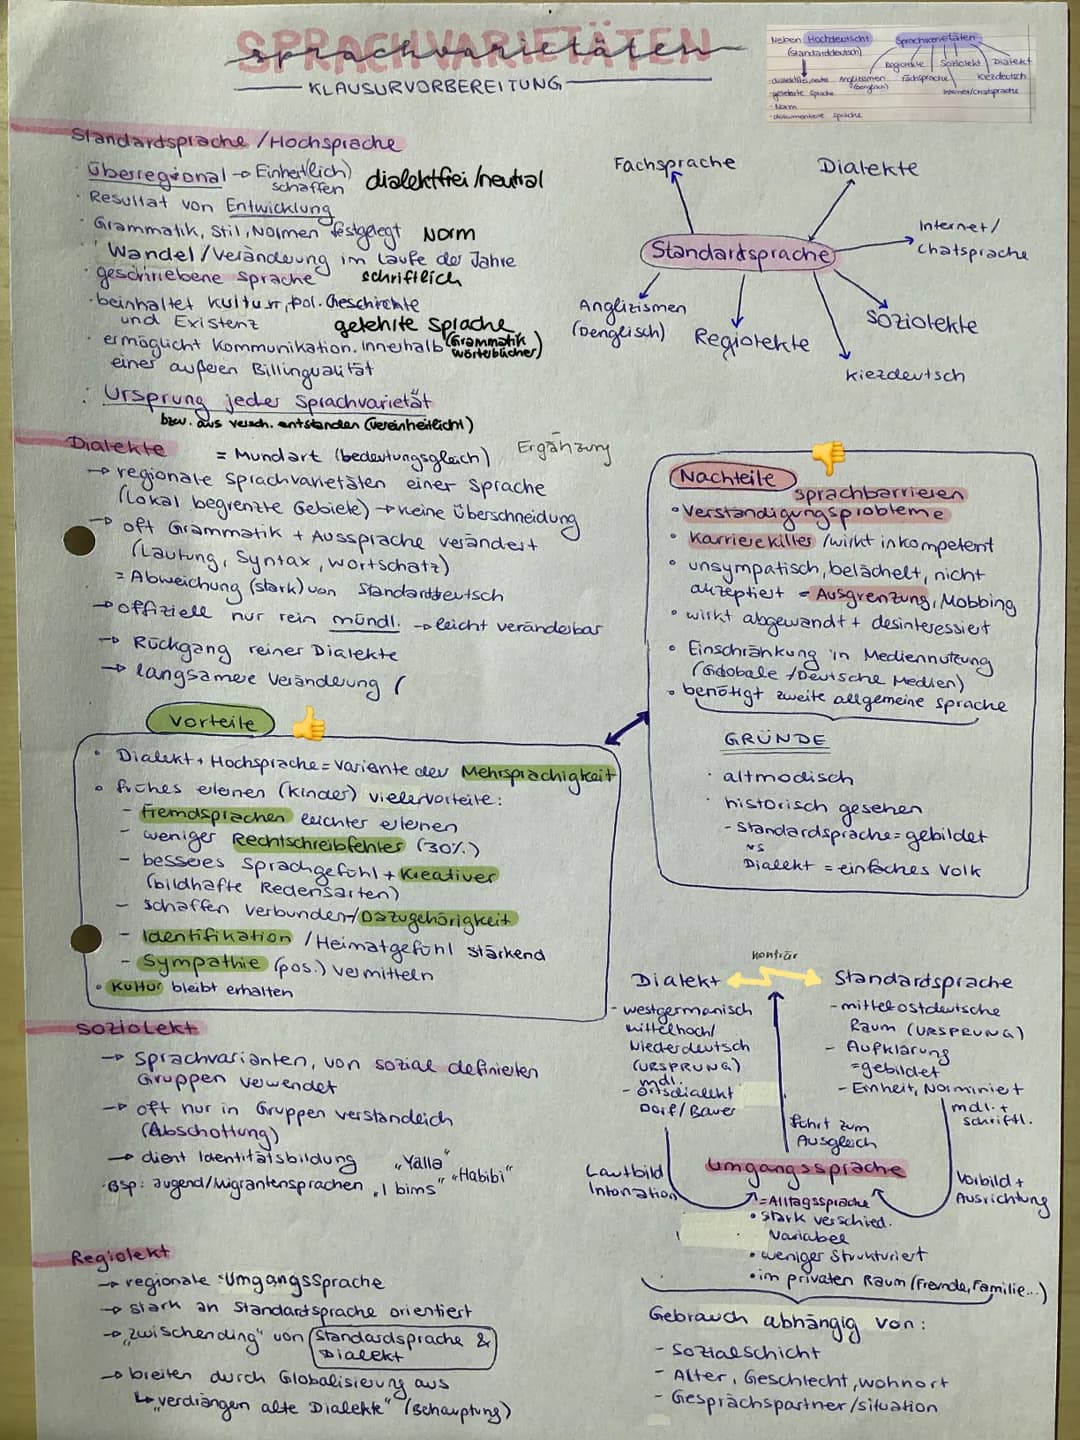 SPRACHVARIETÄTEN
sprachvarietäten
KLAUSURVORBEREITUNG
Neben Hochdeutsch
Sprachvarietäten
(Standarddeutsch)
Regiolekte Soziolekt Dialekt
dialektfrei/neutral Anglizismen Fachsprache Kiezdeutsch
- gelehrte Sprache (Denglisch) Internet/Chatsprache
- Norm
- dokumentierte Sprache
Standardsprache /Hochsprache
· Überregional → Einheit(lich)
schaffen
dialektfrei/neutral
· Resultat von Entwicklung
· Grammatik, Stil, Normen festgelegt Norm
· Wandel/Veränderung im Laufe der Jahre
· geschriebene Sprache schriftlich
· beinhaltet kultur, pol. Geschichte
und Existenz gelehrte Sprache
· ermöglicht Kommunikation. Innerhalb (Grammatik
wörterbücher)
einer äußeren Billingualität
· Ursprung jeder Sprachvarietät
bzw. aus versch. entstanden (vereinheitlicht)
Fachsprache
Dialekte
Internet/
Chatsprache
Standardsprache
Anglizismen
(Denglisch)
Regiolekte
Soziolekte
Kiezdeutsch
Dialekte
= Mundart (bedeutungsgleich) Ergänzung
→ regionale Sprachvarietäten einer Sprache
(Lokal begrenzte Gebiete) → keine Überschneidung
→ oft Grammatik + Aussprache verändert
(Lautung, Syntax, Wortschatz)
= Abweichung (stark) von Standarddeutsch
→ offiziell nur rein mündl. → leicht veränderbar
→ Rückgang reiner Dialekte
→ langsamere Veränderung (
Nachteile
Sprachbarrieren
• Verständigungsprobleme
• Karrierekiller /wirkt inkompetent
• unsympatisch, belächelt, nicht
akzeptiert = Ausgrenzung, Mobbing
• wirkt abgewandt + desinteressiert
• Einschränkung in Mediennutzung
(Globale +/Deutsche Medien)
• benötigt zweite allgemeine Sprache
GRÜNDE
· altmodisch
· historisch gesehen
- Standardsprache = gebildet
vs
Dialekt = einfaches Volk
Vorteile
• Dialekt + Hochsprache = Variante der Mehrsprachigkeit
• frühes erlenen (Kinder) viele Vorteile:
- Fremdsprachen leichter erlenen
- weniger Rechtschreibfehler (30%)
- besseres Sprachgefühl + kreativer
(bildhafte Redensarten)
- schaffen Verbunden-/Dazugehörigkeit
- Identifikation /Heimatgefühl stärkend
- Sympathie (pos.) vermitteln
• Kultur bleibt erhalten
Soziolekt
→ Sprachvarianten, von sozial definierten
Gruppen verwendet
→ oft nur in Gruppen verständlich
(Abschottung)
→ dient Identitätsbildung „Yalla“
Bsp: Jugend/Migrantensprachen „I bims“ „Habibi“
Regiolekt
→ regionale Umgangssprache
→ stark an Standartsprache orientiert
→ „zwischending“ von Standardsprache &
Dialekt
→ breiten durch Globalisierung aus
↳ „verdrängen alte Dialekte“ (Behauptung)
konträr
Dialekt
Standardsprache
- westgermanisch
mittelhoch/
Niederdeutsch
(URSPRUNG)
mdl.
- Ortsdialekt
Dorf/Bauer
- mittelostdeutsche
Raum (URSPRUNG)
- Aufklärung
= gebildet
- Einheit, Norminiert
mdl. +
schriftl.
führt zum
Ausgleich
Lautbild
Intonation
Umgangssprache
Vorbild +
Ausrichtung
= Alltagssprache
• stark verschied.
Variabel
• weniger Strukturiert
• im privaten Raum (Fremde, Familie...)
Gebrauch abhängig von:
- Sozialschicht
- Alter, Geschlecht, wohnort
- Gesprächspartner/situation